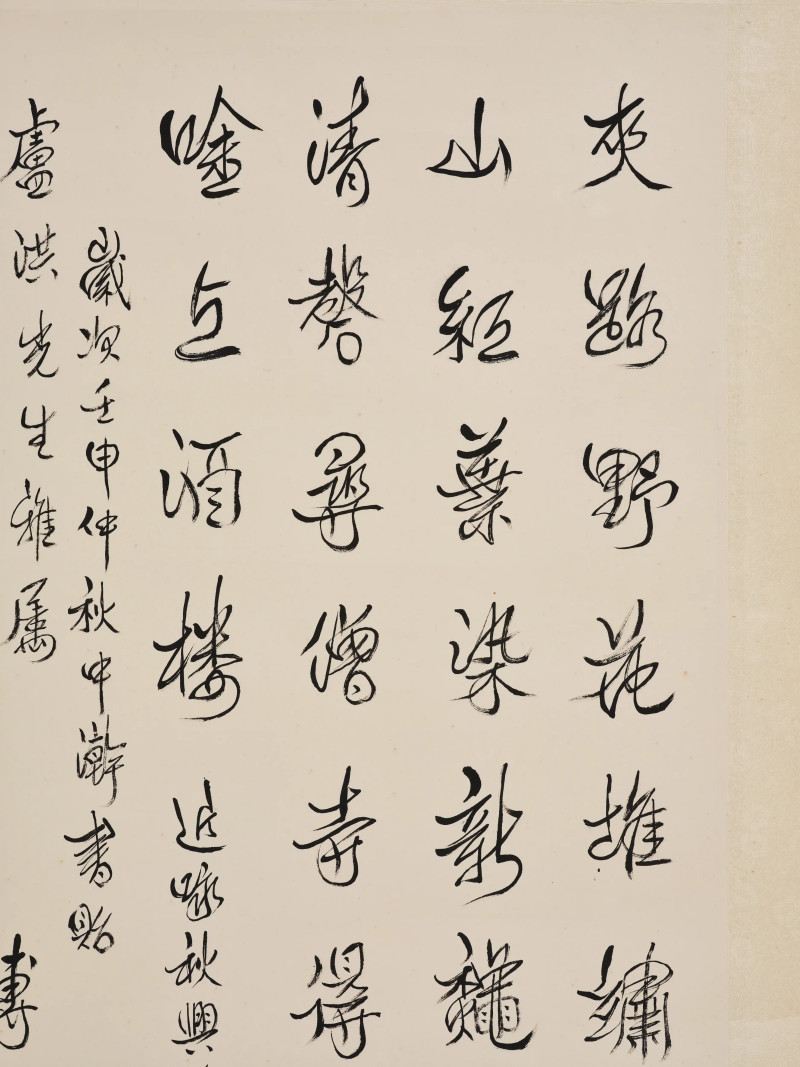 夾路野花堆繡
山紅葉染新龝
清磬尋僧寺得
唫上酒楼 近咏秋興
歲次壬申仲秋中澣書貽
盧洪先生雅屬